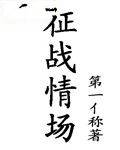 征战情场
第一亻称著